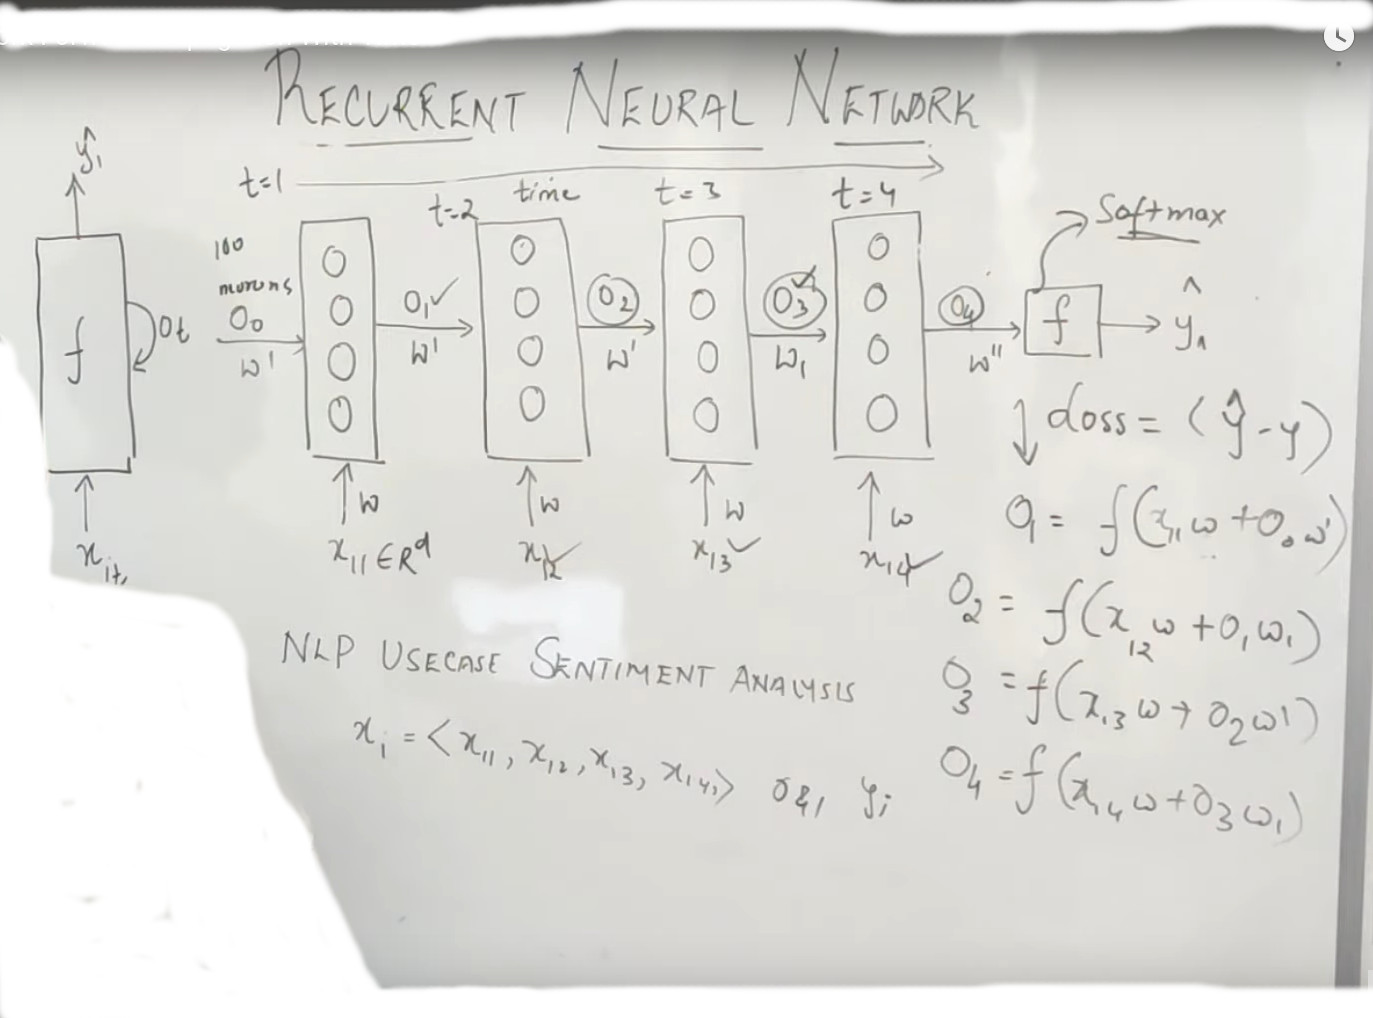 RECURRENT NEURAL NETWORK
ŷ₁
t=1
t=2
time
t=3
t=4
Softmax
100
O₀
W'
O₁✓
W'
O₂
W'
O₃✓
W₁
O₄
W''
f
ŷ₁
f
Ot
w
w
w
w
x₁ₜ,
x₁₁ ∈ Rᵈ
x₁₂✓
x₁₃✓
x₁₄✓
↓ Loss = (ŷ-y)
O₁ = f(x₁₁w + O₀w')
O₂ = f(x₁₂w + O₁w₁)
O₃ = f(x₁₃w + O₂w')
O₄ = f(x₁₄w + O₃w₁)
NLP USECASE SENTIMENT ANALYSIS
xᵢ = <x₁₁, x₁₂, x₁₃, x₁₄,> O&1 yᵢ